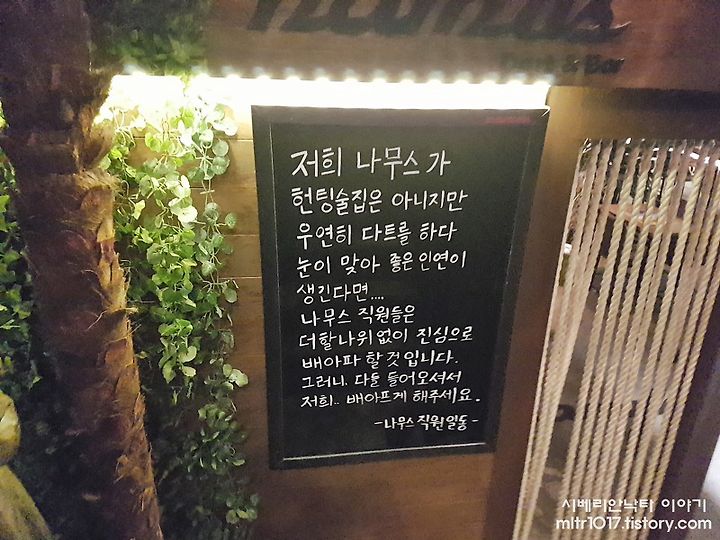 Dart & Bar
저희 나무스가
헌팅술집은 아니지만
우연히 다트를 하다
눈이 맞아 좋은 인연이
생긴다면....
나무스 직원들은
더할나위없이 진심으로
배아파 할것입니다.
그러니. 다들 들어오셔서
저희.. 배아프게 해주세요.
-나무스직원일동-
시베리안낙타 이야기
mltr1017.tistory.com